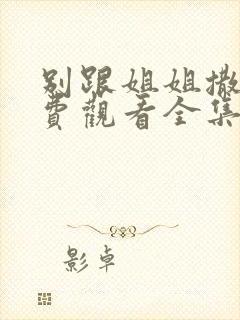 别跟姐姐撒
费觀看全集
影卓